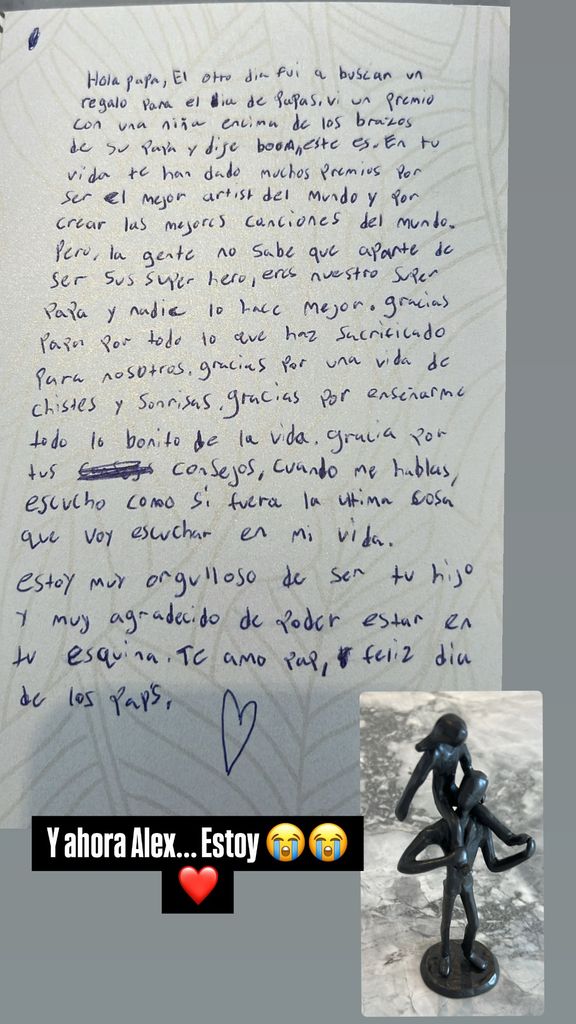 Hola papa, El otro dia fui a buscan un
regalo para el dia de papas, vi un premio
con una niña encima de los brazos
de su papa y dije boom, este es. En tu
vida te han dado muchos premios por
ser el mejor artist del mundo y por
crear las mejores canciones del mundo.
Pero, la gente no sabe que aparte de
ser sus super hero, eres nuestro super
papa y nadie lo hace mejor. gracias
papa por todo lo que haz sacrificado
para nosotros. gracias por una vida de
chistes y sonrisas. gracias por enseñarme
todo lo bonito de la vida. gracia por
tus consejos, cuando me hablas,
escucho como si fuera la ultima cosa
que voy escuchar en mi vida.
estoy muy orgulloso de ser tu hijo
y muy agradecido de poder estar en
tu esquina. Te amo pap, feliz dia
de los pap's.
Y ahora Alex... Estoy 😭😭
❤️